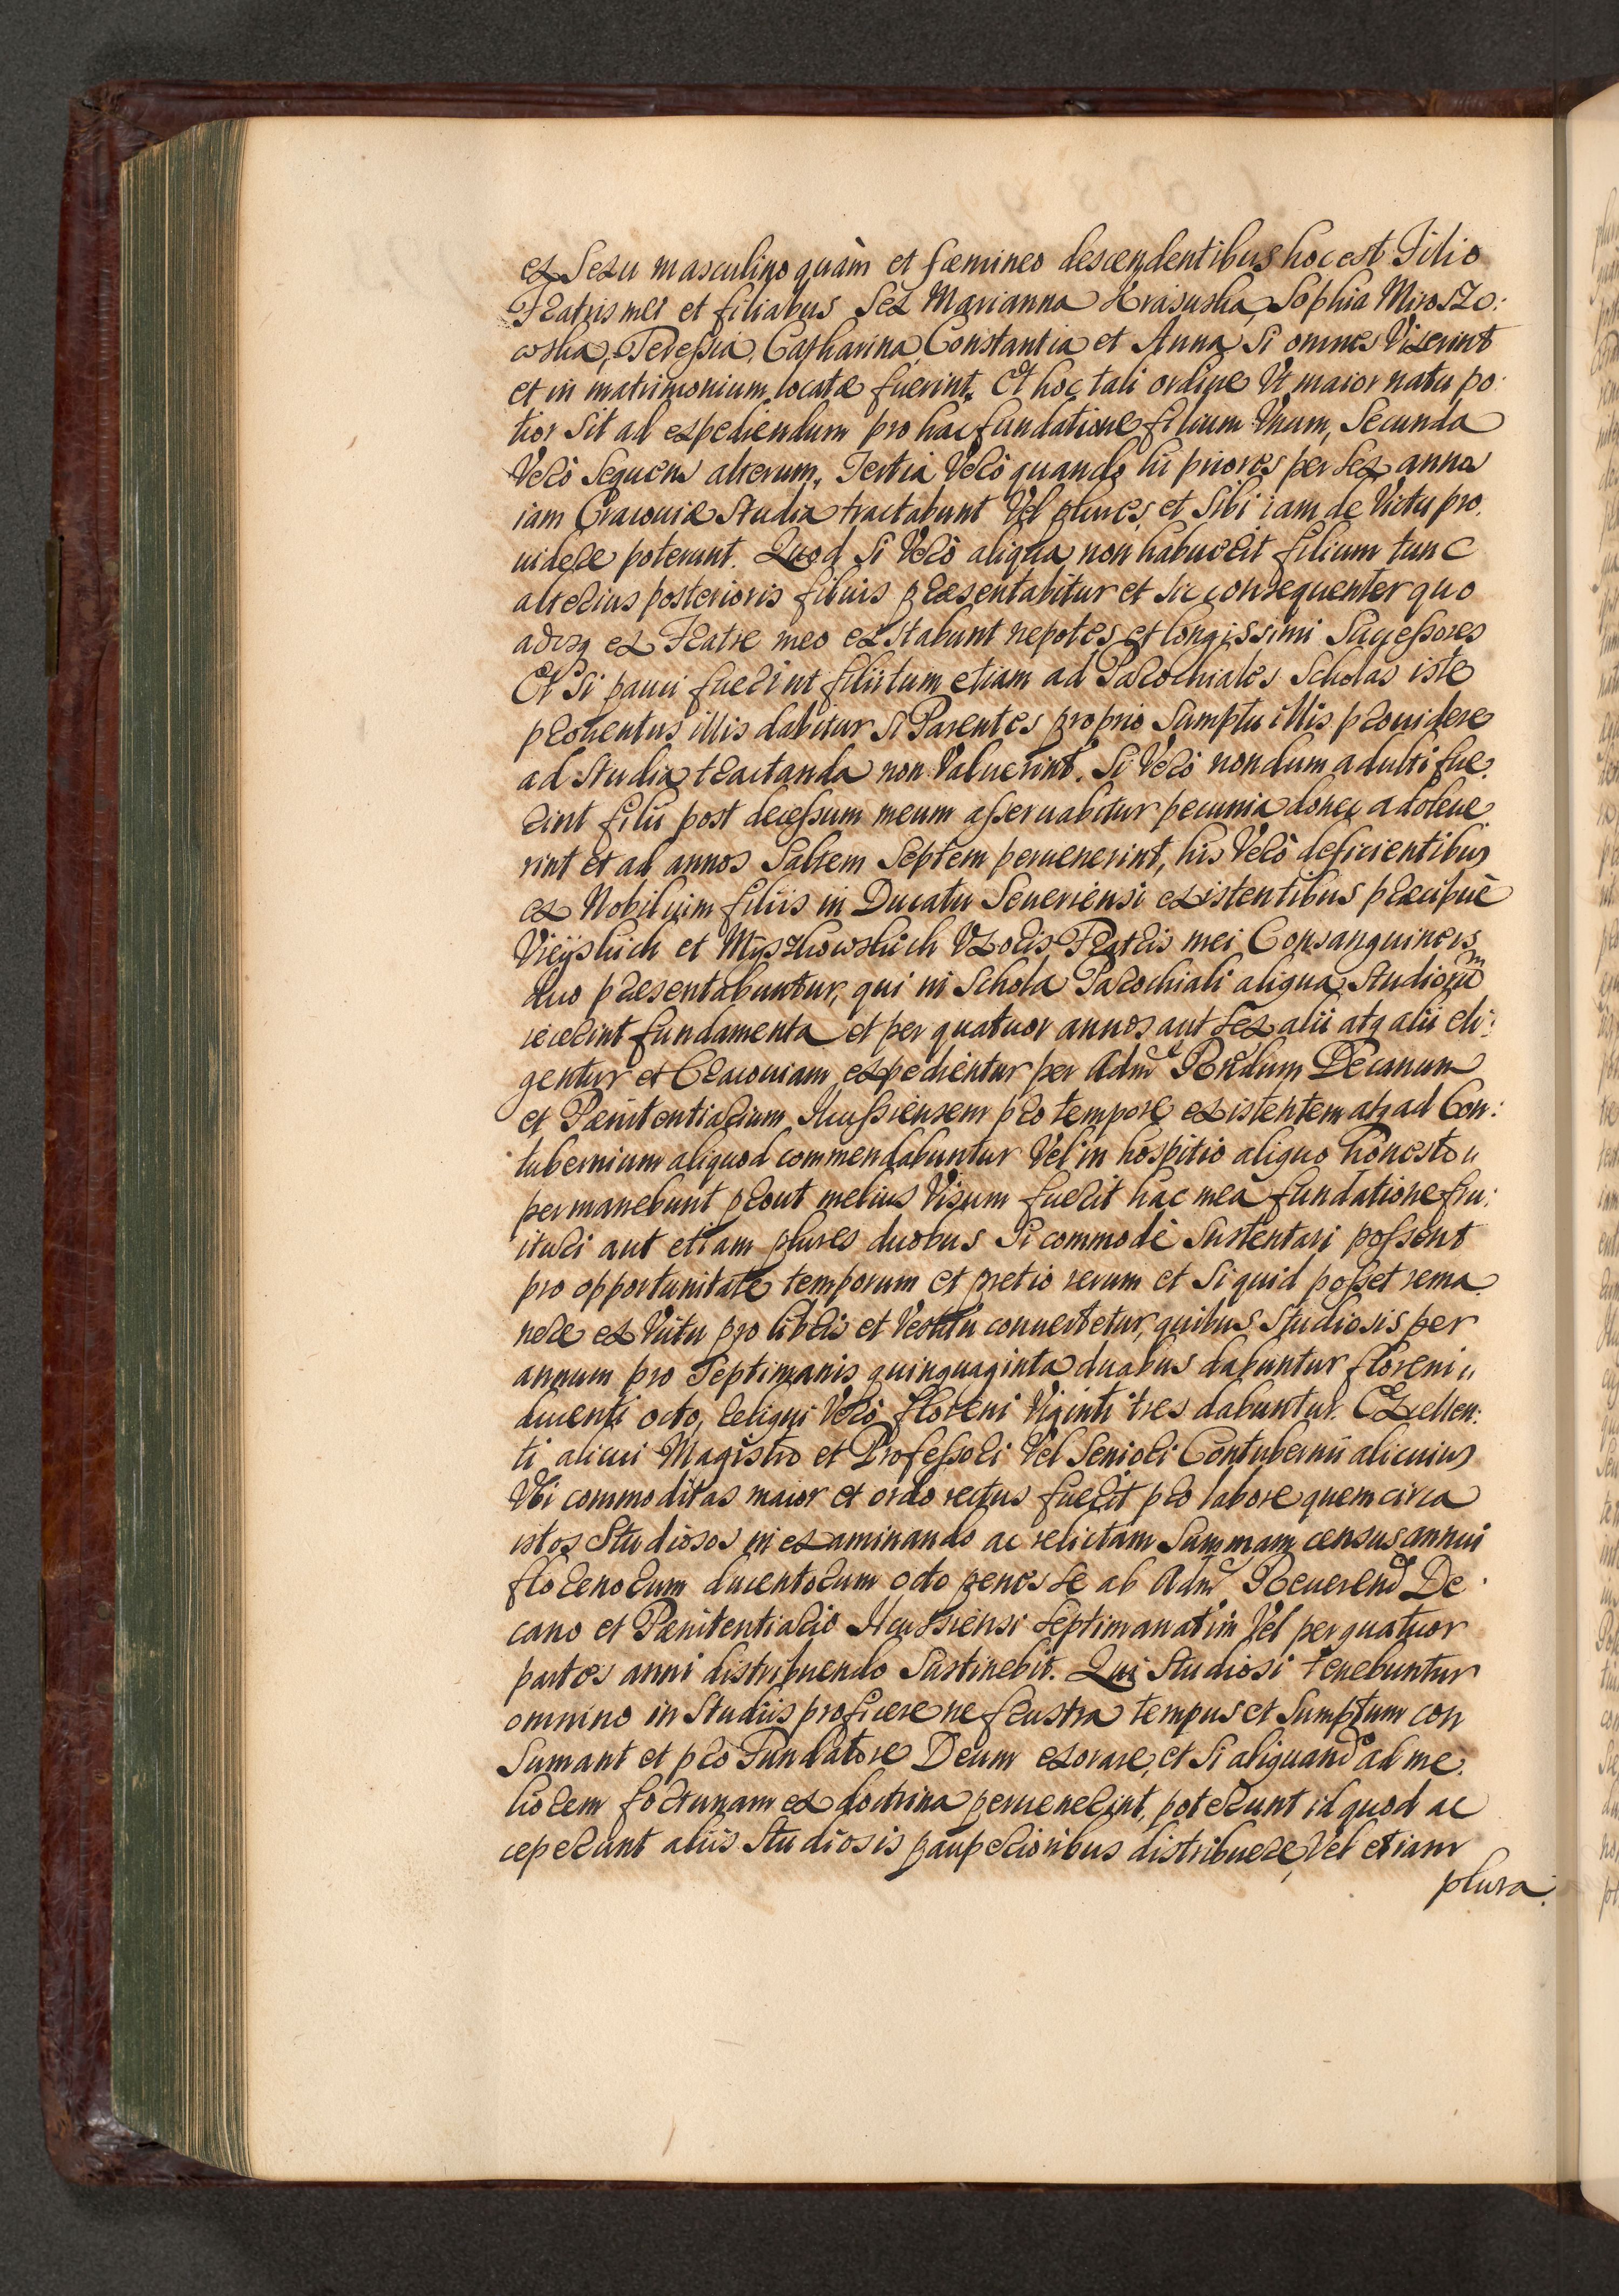 ex Sexu masculino quàm et fœmineo descendentibus hoc est Filio
Fratris mei et filiabus Sex Marianna Krasuska, Sophia Miroszo:
wska, Teressia, Catharina, Constantia et Anna, Si omnes Vixerint
et in matrimonium locatæ fuerint. Et hoc tali ordine Vt maior natu po:
tior Sit ad expediendum pro hac fundatione filium Vnum, Secunda
Verò Sequens alterum, Tertia Verò quando hi priores per Sex annos
iam Cracouiæ Studia tractabunt Vel plures, et Sibi iam de Victu pro.
uidere poterunt. Quod Si Verò aliqua non habuerit filium tunc
alterius posterioris filius præsentabitur et Sic consequenter quo
adusq ex Fratre meo extabunt nepotes et longissimi Successores
Et Si pauci fuerint filii tum etiam ad Parochiales Scholas iste
prouentus illis dabitur Si Parentes proprio Sumptu illis prouidere
ad Studia tractanda non Valuerint. Si Verò nondum adulti fue.
rint filii post decessum meum asseruabitur pecunia donec adoleue
rint et ad annos Saltem Septem peruenerint, his Verò deficientibus
ex Nobilium filiis in Ducatu Seueriensi existentibus præcipuè
Vieÿskich et Mÿszkowskich Vxoris Fratris mei Consanguineis
duo præsentabuntur, qui in Schola Parochiali aliqua Studiorū
iecerint fundamenta et per quatuor annos aut Sex alii atq alii eli:
gentur et Cracouiam expedientur per Adm Rndum Decanum
et Pœnitentiarium Ilcussiensem pro tempore existentem atq ad Con:
tubernium aliquod commendabuntur Vel in hospitio aliquo honesto
permanebunt prout melius Visum fuerit hac mea fundatione fru:
ituri aut etiam plures duobus Si commodè Sustentari possent
pro opportunitate temporum et pretio rerum et Si quid posset rema
nere ex Victu pro libris et Vestitu conuertetur, quibus Studiosis per
annum pro Septimanis quinquaginta duabus dabuntur floreni
ducenti octo, reliqui Verò floreni Viginti tres dabuntur. Excellen:
ti alicui Magistro et Professori Vel Seniori Contubernii alicuius
Vbi commoditas maior et ordo rectus fuerit pro labore quem circa
istos Studiosos in examinando ac relictam Summam census annui
florenorum ducentorum octo penes Se ab Adm Reuerend De
cano et Pœnitentiario Ilcussiensi Septimanatim Vel per quatuor
partes anni distribuendo Sustinebit. Qui Studiosi tenebuntur
omnino in Studiis proficere ne frustra tempus et Sumptum con
Sumant et pro Fundatore Deum exorare, et Si aliquand ad me.
liorem fortunam ex doctrina peruenerint, poterunt id quod ac
ceperunt aliis Studiosis pauperioribus distribuere, Vel etiam
plura.